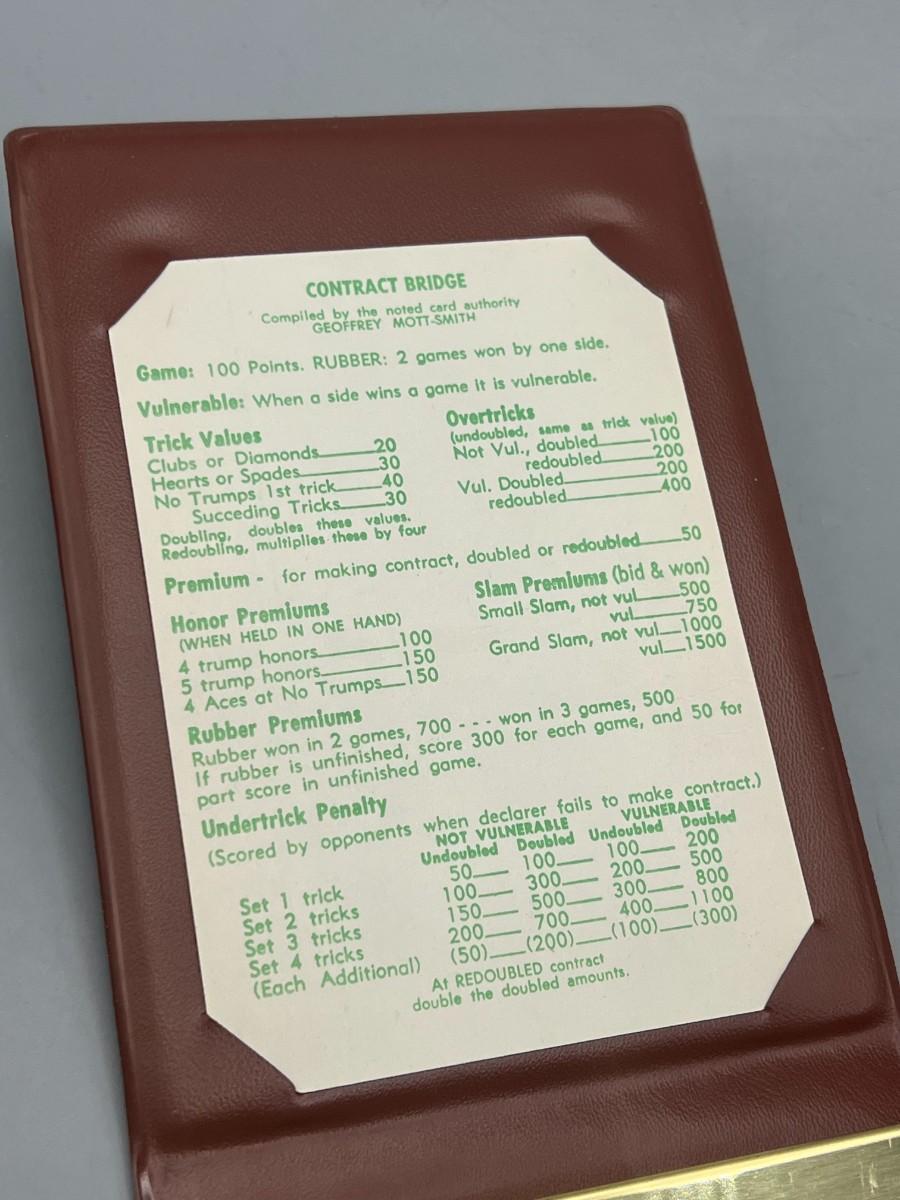 CONTRACT BRIDGE
Compiled by the noted card authority
GEOFFREY MOTT-SMITH
Game: 100 Points. RUBBER: 2 games won by one side.
Vulnerable: When a side wins a game it is vulnerable.
Trick Values
Clubs or Diamonds 20
Hearts or Spades 30
No Trumps 1st trick 40
Succeding Tricks 30
Doubling, doubles these values.
Redoubling, multiplies these by four
Overtricks
(undoubled, same as trick value)
Not Vul., doubled 100
redoubled 200
Vul. Doubled 200
redoubled 400
Premium - for making contract, doubled or redoubled 50
Honor Premiums
(WHEN HELD IN ONE HAND)
4 trump honors 100
5 trump honors 150
4 Aces at No Trumps 150
Slam Premiums (bid & won)
Small Slam, not vul 500
vul 750
Grand Slam, not vul 1000
vul 1500
Rubber Premiums
Rubber won in 2 games, 700 - - - won in 3 games, 500
If rubber is unfinished, score 300 for each game, and 50 for
part score in unfinished game.
Undertrick Penalty
(Scored by opponents when declarer fails to make contract.)
NOT VULNERABLE VULNERABLE
Undoubled Doubled Undoubled Doubled
Set 1 trick 50 100 100 200
Set 2 tricks 100 300 200 500
Set 3 tricks 150 500 300 800
Set 4 tricks 200 700 400 1100
(Each Additional) (50) (200) (100) (300)
At REDOUBLED contract
double the doubled amounts.